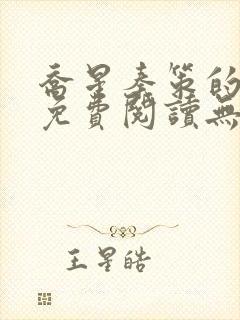 喬星秦策的
免費閱讀無
王星皓